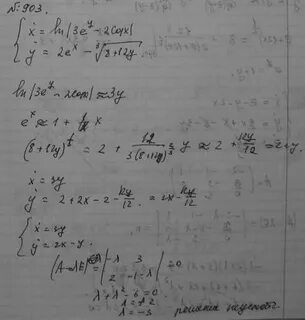 №903.
{ ẋ = ln|3e^y - 2cosx|
ẏ = 2e^x - ∛(8+12y)
ln|3e^y - 2cosx| ≈ 3y
e^x ≈ 1 + x
(8+12y)^(1/3) ≈ 2 + 12/(3(8+12y)^(2/3)) y ≈ 2 + 12y/12 = 2+y
ẋ = 3y
ẏ = 2 + 2x - 2 - 12y/12 = 2x - 12y/12
{ ẋ = 3y
ẏ = 2x - y
(A-λE) = | -λ 3
2 -1-λ | = 0
λ + λ² - 6 = 0
λ = 2
λ = -3 решение неустойч.